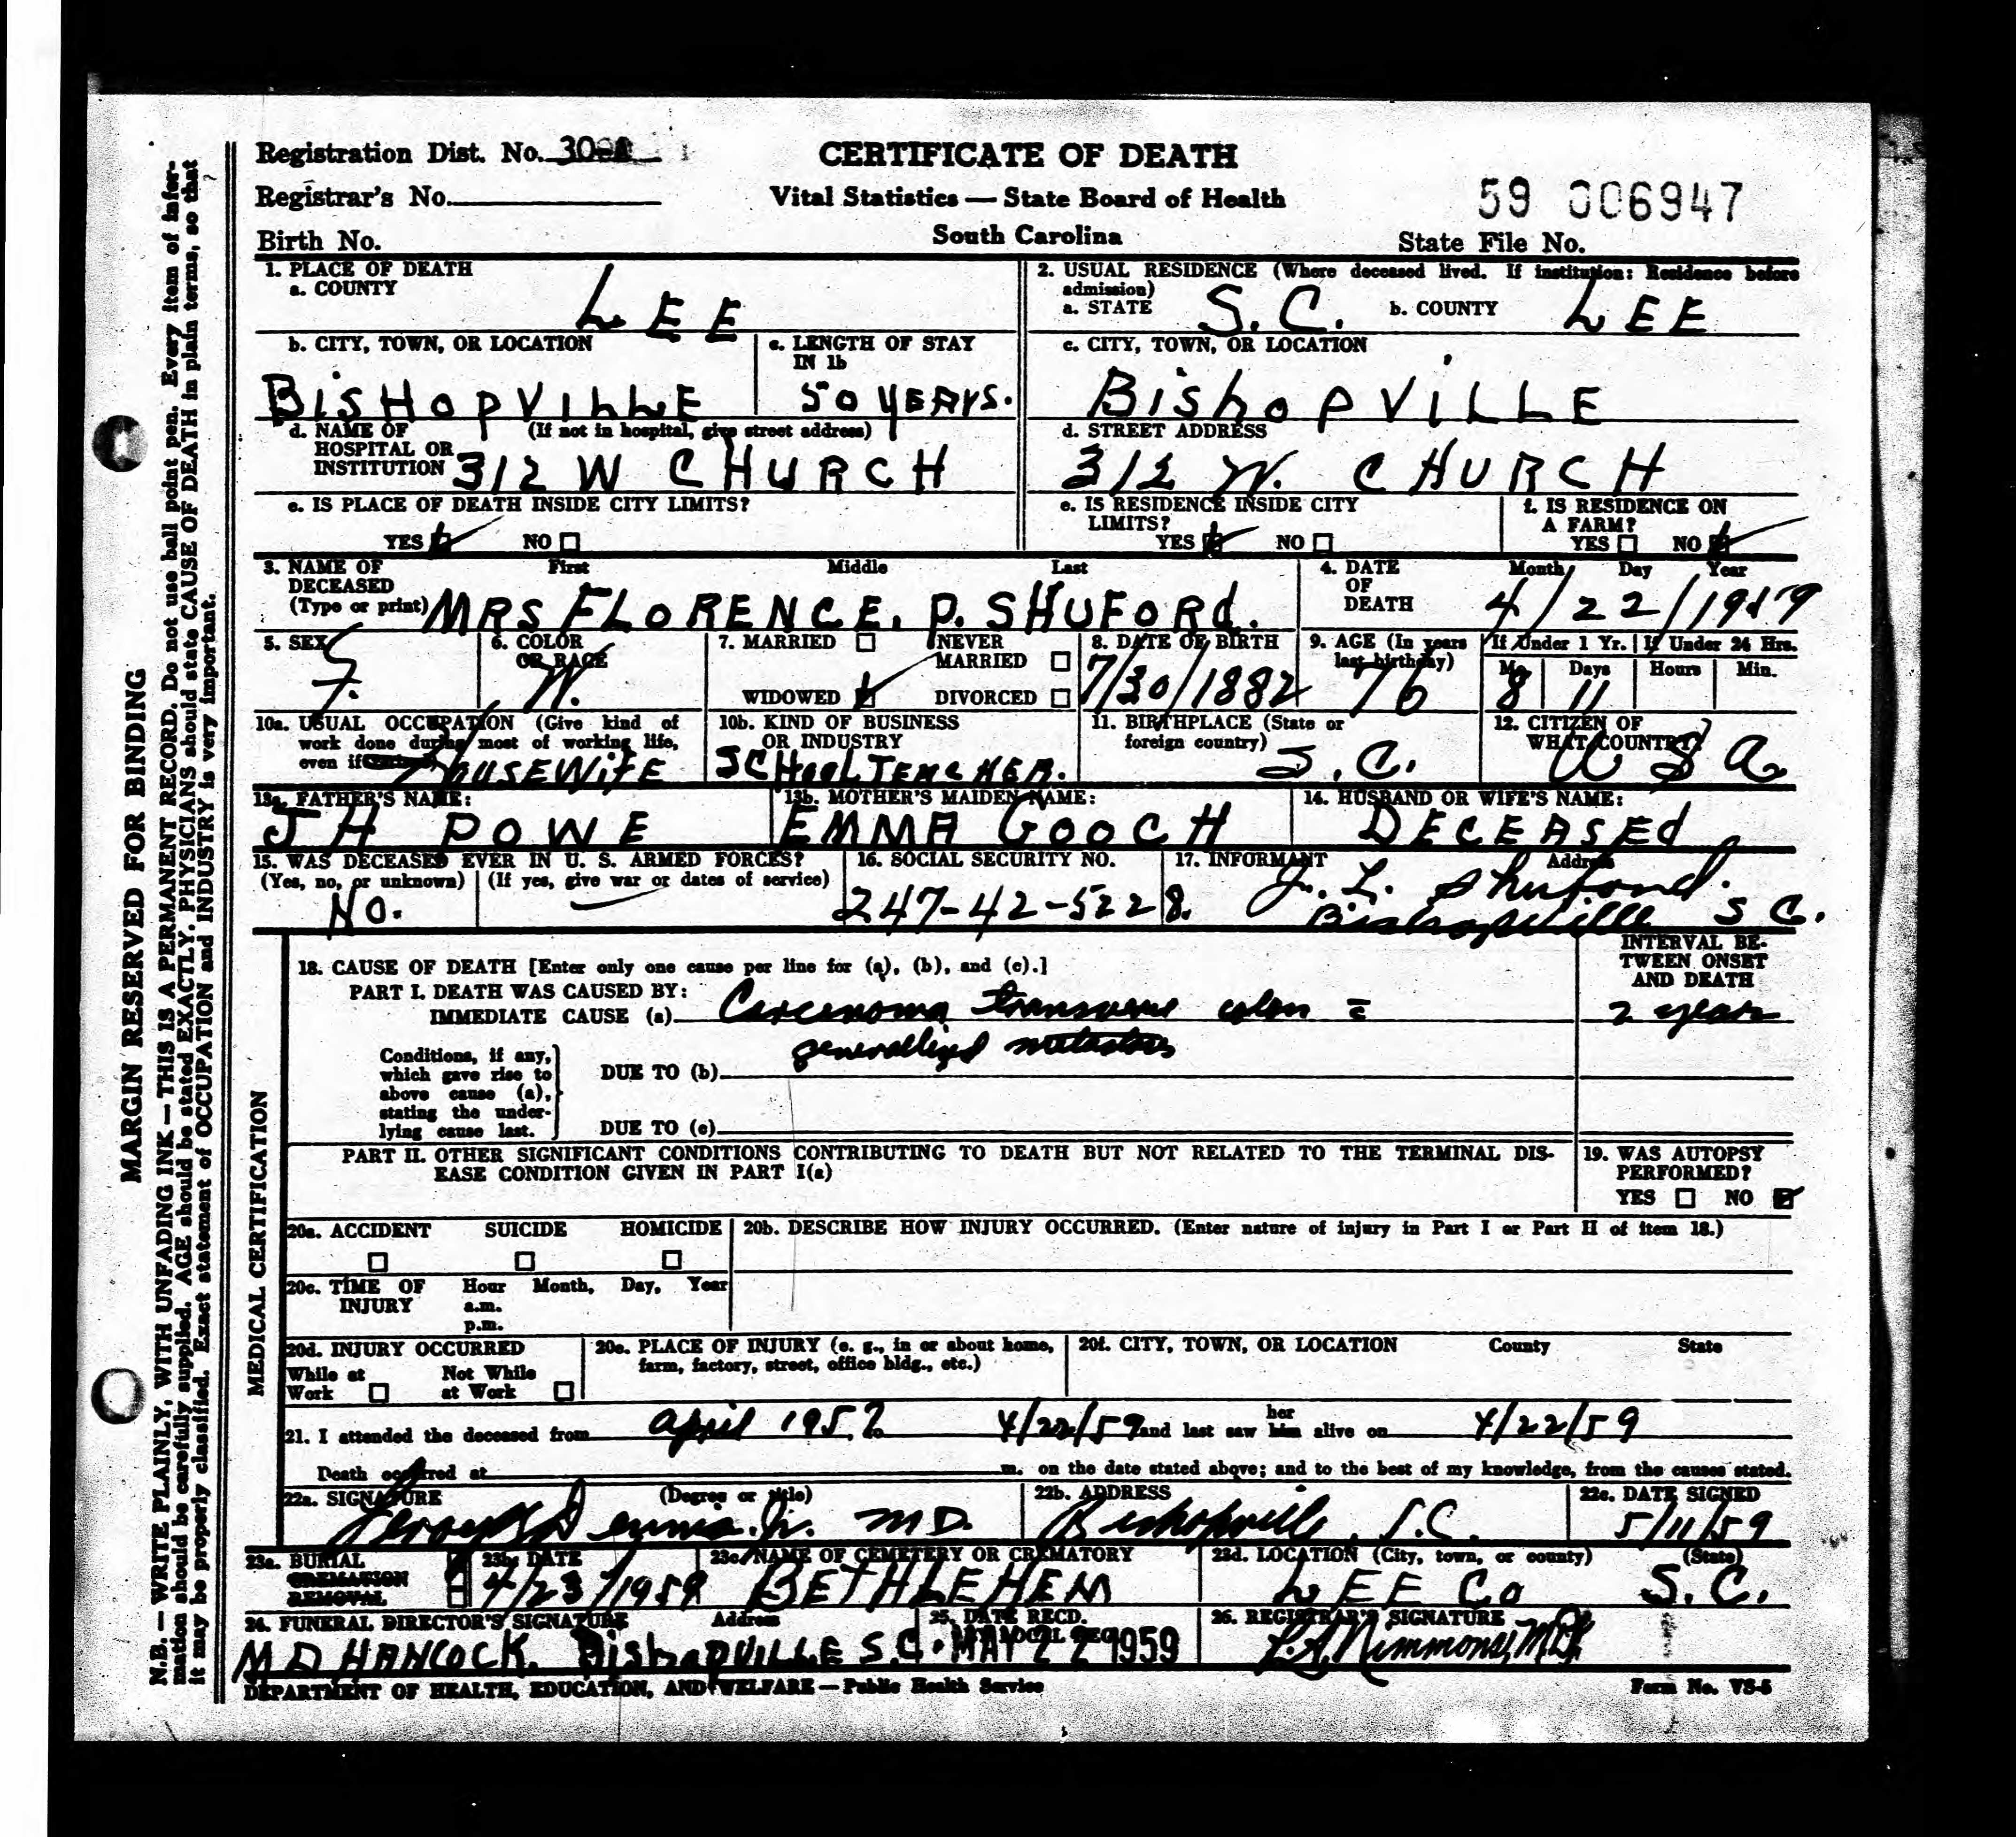 Registration Dist. No. 30
CERTIFICATE OF DEATH
Registrar's No.
Vital Statistics — State Board of Health
59 006947
Birth No.
South Carolina
State File No.
1. PLACE OF DEATH
a. COUNTY
LEE
2. USUAL RESIDENCE (Where deceased lived. If institution: Residence before admission)
a. STATE S.C. b. COUNTY LEE
b. CITY, TOWN, OR LOCATION
BISHOPVILLE
c. LENGTH OF STAY IN 1b
50 YEARS.
c. CITY, TOWN, OR LOCATION
BishopVILLE
d. NAME OF HOSPITAL OR INSTITUTION (If not in hospital, give street address)
312 W CHURCH
d. STREET ADDRESS
312 W. CHURCH
e. IS PLACE OF DEATH INSIDE CITY LIMITS?
YES NO
e. IS RESIDENCE INSIDE CITY LIMITS?
YES NO
f. IS RESIDENCE ON A FARM?
YES NO
3. NAME OF DECEASED (Type or print)
First Middle Last
MRS FLORENCE. P. SHUFORd.
4. DATE OF DEATH
Month Day Year
4/22/1959
5. SEX
F.
6. COLOR OR RACE
W.
7. MARRIED NEVER MARRIED
WIDOWED DIVORCED
8. DATE OF BIRTH
7/30/1882
9. AGE (In years last birthday)
76
If Under 1 Yr. If Under 24 Hrs.
Mo. Days Hours Min.
8 11
10a. USUAL OCCUPATION (Give kind of work done during most of working life, even if retired)
HOUSEWIFE
10b. KIND OF BUSINESS OR INDUSTRY
SCHOOL TEACHER.
11. BIRTHPLACE (State or foreign country)
S.C.
12. CITIZEN OF WHAT COUNTRY?
USA
13a. FATHER'S NAME:
JH POWE
13b. MOTHER'S MAIDEN NAME:
EMMA GOOCH
14. HUSBAND OR WIFE'S NAME:
DECEASEd
15. WAS DECEASED EVER IN U. S. ARMED FORCES?
(Yes, no, or unknown) (If yes, give war or dates of service)
NO.
16. SOCIAL SECURITY NO.
247-42-5228.
17. INFORMANT Address
J. L. Shuford.
Bishopville S C.
MEDICAL CERTIFICATION
18. CAUSE OF DEATH [Enter only one cause per line for (a), (b), and (c).]
INTERVAL BETWEEN ONSET AND DEATH
PART I. DEATH WAS CAUSED BY:
IMMEDIATE CAUSE (a) Carcenoma transverse colon c̄
2 year
generalized metastases
Conditions, if any, which gave rise to above cause (a), stating the underlying cause last.
DUE TO (b)
DUE TO (c)
PART II. OTHER SIGNIFICANT CONDITIONS CONTRIBUTING TO DEATH BUT NOT RELATED TO THE TERMINAL DIS-
EASE CONDITION GIVEN IN PART I(a)
19. WAS AUTOPSY PERFORMED?
YES NO
20a. ACCIDENT SUICIDE HOMICIDE
20b. DESCRIBE HOW INJURY OCCURRED. (Enter nature of injury in Part I or Part II of item 18.)
20c. TIME OF INJURY Hour Month, Day, Year
a.m.
p.m.
20d. INJURY OCCURRED
While at Work Not While at Work
20e. PLACE OF INJURY (e. g., in or about home, farm, factory, street, office bldg., etc.)
20f. CITY, TOWN, OR LOCATION County State
21. I attended the deceased from April 1957 4/22/59 and last saw her him alive on 4/22/59
Death occurred at m. on the date stated above; and to the best of my knowledge, from the causes stated.
22a. SIGNATURE (Degree or title)
Dennis. Jr. MD.
22b. ADDRESS
Bishopville, S.C.
22c. DATE SIGNED
5/11/59
23a. BURIAL
CREMATION
REMOVAL
23b. DATE
4/23/1959
23c. NAME OF CEMETERY OR CREMATORY
BETHLEHEM
23d. LOCATION (City, town, or county) (State)
LEE CO S.C.
24. FUNERAL DIRECTOR'S SIGNATURE Address
MD HANCOCK. BishopVILLE S.C.
25. DATE RECD. BY LOCAL REG.
MAY 22 1959
26. REGISTRAR'S SIGNATURE
Nimmons, MD
DEPARTMENT OF HEALTH, EDUCATION, AND WELFARE — Public Health Service
Form No. VS-5
MARGIN RESERVED FOR BINDING
N.B. — WRITE PLAINLY, WITH UNFADING INK — THIS IS A PERMANENT RECORD. Do not use ball point pen. Every item of infor-
mation should be carefully supplied. AGE should be stated EXACTLY. PHYSICIANS should state CAUSE OF DEATH in plain terms, so that
it may be properly classified. Exact statement of OCCUPATION and INDUSTRY is very important.